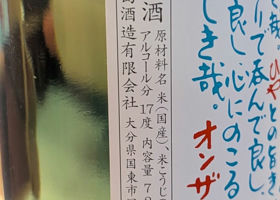 りで呑んで良し
良し心にのこる
しき哉。オンザ
酒
原材料名 米(国産)、米こうじ
アルコール分 17度 内容量 7
酒造有限会社 大分県国東市